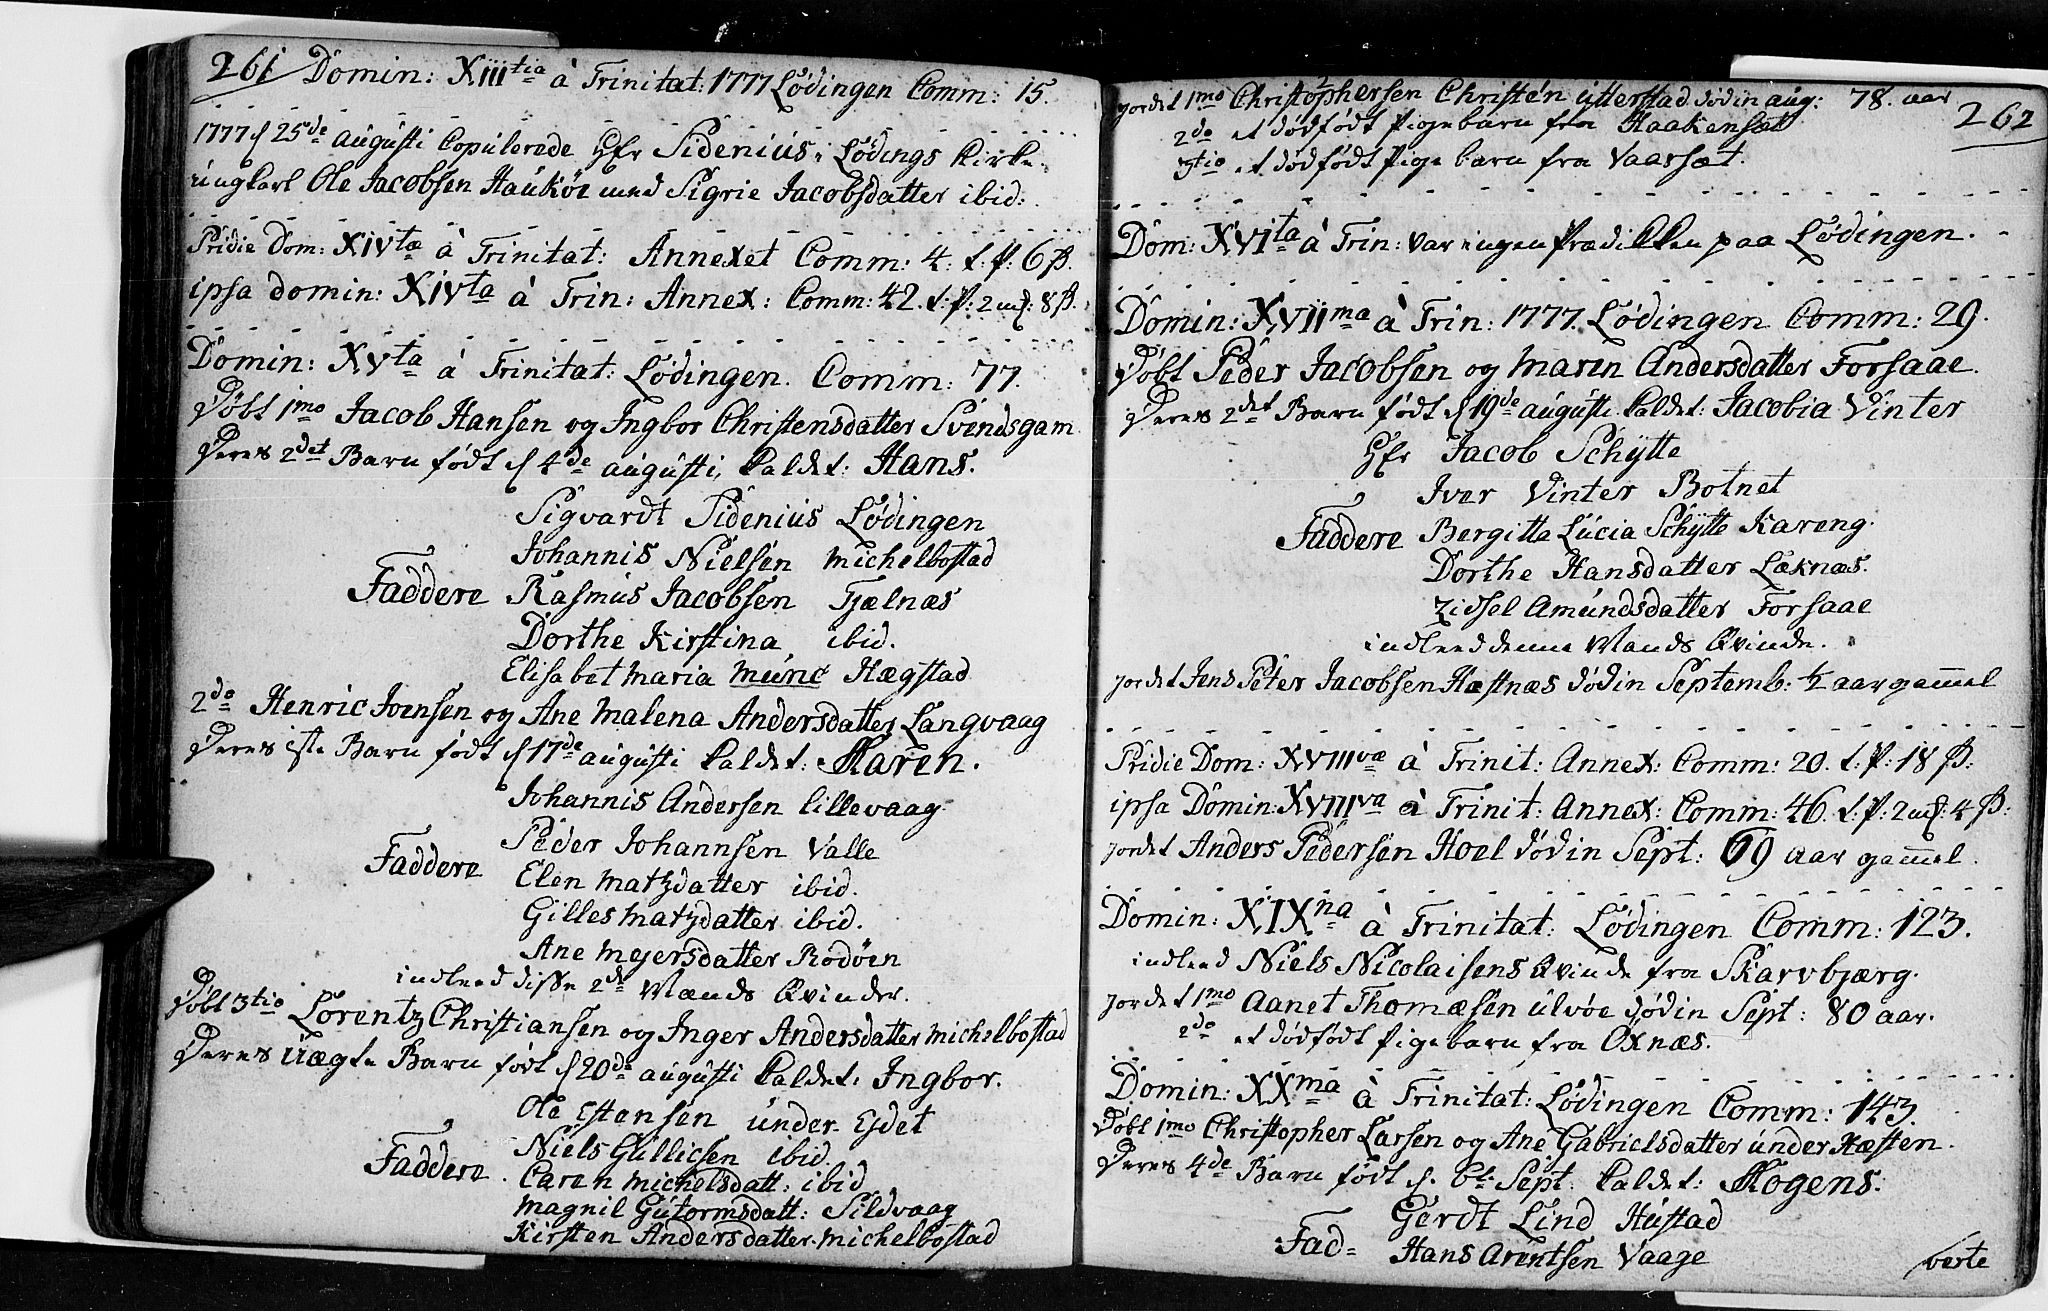 261 Domin: XIII tia à Trinitat: 1777 Lødingen Comm: 15.
1777 d 25de augusti Copulerede Hr Sidenius i Lødings Kirke
ungkarl Ole Jacobsen Haukøe med Sigrie Jacobsdatter ibid:
Pridie Dom: XIVtæ à Trinitat: Annexet Comm: 4. t. P: 6 β.
ipsa domin: XIVta à Trin: Annex: Comm: 42. t. P: 2 mk: 8 β.
Domin: XVta à Trinitat: Lødingen. Comm: 77.
Døbt 1mo Jacob Hansen og Ingbor Christensdatter Svendsgam
Deres 2det Barn født d 4de augusti, kaldet: Hans.
Sigvardt Sidenius Lødingen
Johannis Nielsen michelbostad
Faddere Rasmus Jacobsen Tjælnæs
Dorthe Kirstina ibid.
Elisabet maria munc Hægstad
2do Henric Joensen og Ane malena Andersdatter Langvaag
Deres 1ste Barn født d 17de augusti kaldet: Maren.
Johannis Andersen lillevaag
Peder Johannsen Valle
Faddere
Elen matzdatter ibid.
Gilles matzdatter ibid.
Ane meyersdatter Rodøen
indleed disse 2de Mænds Qvinder.
Døbt 3tio Lorentz Christiansen og Inger Andersdatter michelbostad
Deres uægte Barn født d 20de augusti kaldet: Ingbor.
Ole Estensen under Ejdet
Niels Gullicsen ibid
Faddere. Caren michelsdatt: ibid
magnil Gutormsdatt: Sildvaag
Kirsten Andersdatter michelbostad
jordet 1mo Christophersen Christen ytterstad død in aug: 78. aar 262
2do et dødfødt Pigebarn fra Haakensæt
3tio et dødfødt Pige barn fra Vaarsæt.
Dom: XVIta à Trin: var ingen Prædikken paa Lødingen.
Domin: XVIIma à Trin: 1777. Lødingen Comm: 29.
Døbt Peder Jacobsen og maren Andersdatter Forsaae.
Deres 2det Barn født d 19de augusti kaldet: Jacobia Vinter
Hr Jacob Schytte
Iver Vinter Botnet
Faddere Bergitta Lucia Schytte Kareng.
Dorthe Hansdatter Læknæs.
Zidsel Amundsdatter Forsaae
indleed denne Mands Qvinde.
jordet Jens Peter Jacobsen Hæstnæs død in Septemb: ½ aar gammel
Pridie Dom: XVIIIvæ à Trinit: Annex: Comm: 20. t. P: 18 β:
ipsa Domin: XVIIIva à Trinit: Annex: Comm: 46. t. P: 2 mk: 4 β:
jordet Anders Pedersen Hoel død in Sept: 69 aar gammel.
Domin: XIXna à Trinitat: Lødingen Comm: 123.
indleed Niels Nicolaisens Qvinde fra Skarvbjærg.
jordet 1mo Aanet Thomæsen ulvøe død in Sept: 80 aar.
2do et dødfødt Pigebarn fra Oxnæs.
Domin: XXma à Trinitat: Lødingen Comm: 143.
Døbt 1mo Christopher Larsen og Ane Gabrielsdatter under Hæsten.
Deres 4de Barn født d. 6t: Sept: kaldet: Mogens.
Gerdt Lind Hustad
Fad= Hans Arentsen Vaage
verte